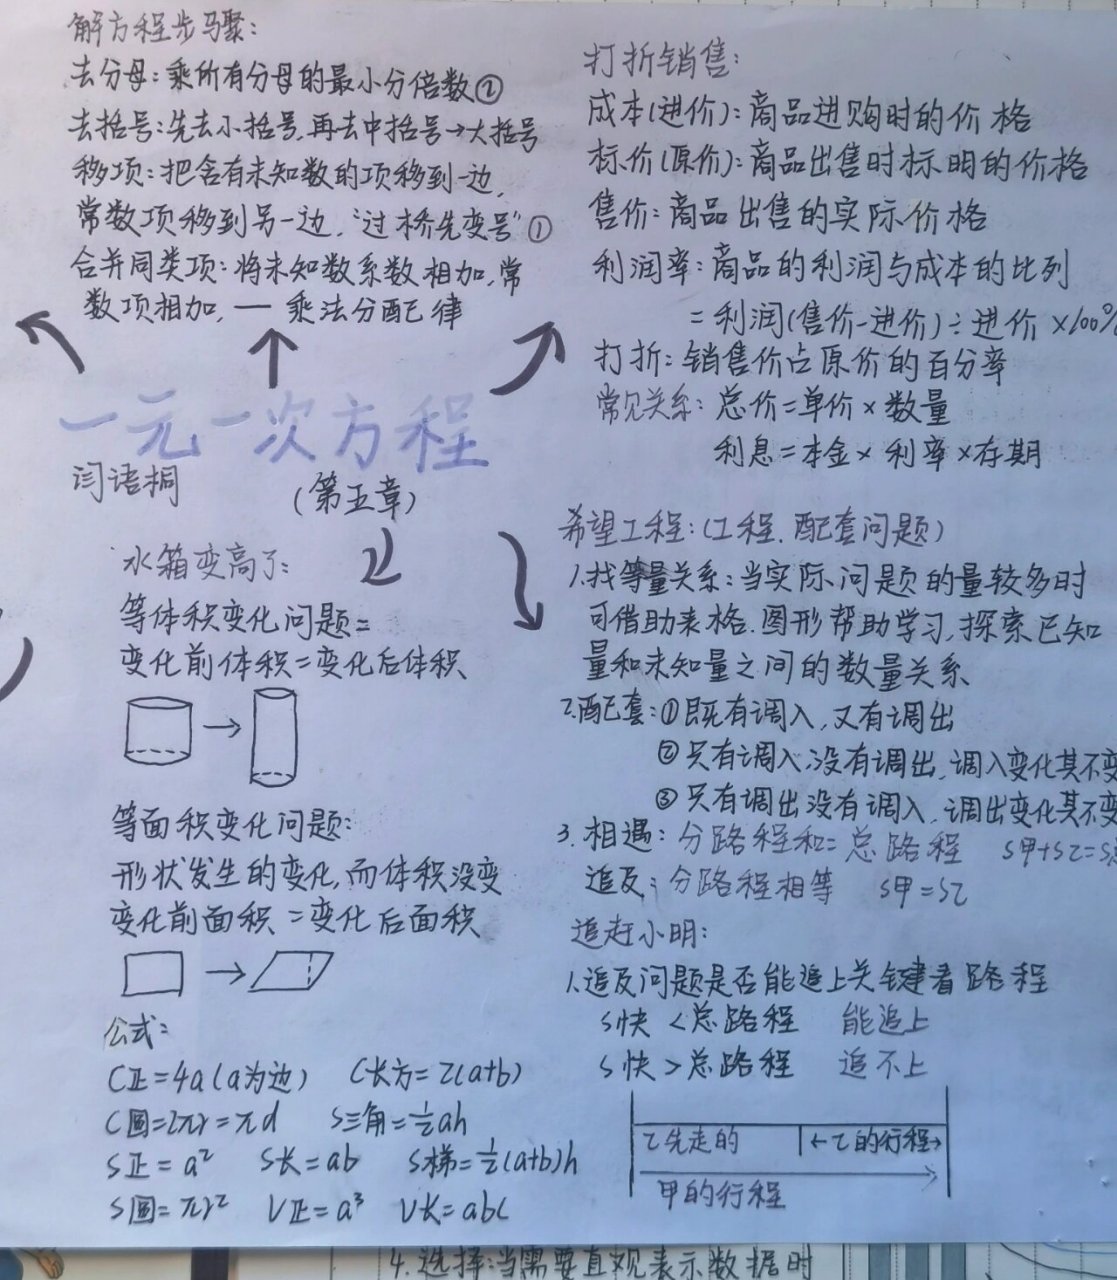 解方程步骤:
去分母:乘所有分母的最小分倍数②
去括号:先去小括号,再去中括号→大括号
移项:把含有未知数的项移到一边,
常数项移到另一边,"过桥先变号"①
合并同类项:将未知数系数相加,常
数项相加,一 乘法分配律
一元一次方程
闫语桐
(第五章)
水箱变高了:
等体积变化问题=
变化前体积=变化后体积
→
等面积变化问题:
形状发生的变化,而体积没变
变化前面积=变化后面积
→
公式:
C正=4a(a为边) C长方=2(a+b)
C圆=2πr=πd S三角=½ah
S正=a² S长=ab S梯=½(a+b)h
S圆=πr² V正=a³ V长=abc
打折销售:
成本(进价):商品进购时的价格
标价(原价):商品出售时标明的价格
售价:商品出售的实际价格
利润率:商品的利润与成本的比列
=利润(售价-进价)÷进价×100%
打折:销售价占原价的百分率
常见关系:总价=单价×数量
利息=本金×利率×存期
希望工程:(工程.配套问题)
1.找等量关系:当实际问题的量较多时
可借助表格.图形帮助学习,探索已知
量和未知量之间的数量关系
2.配套:①既有调入,又有调出
②只有调入没有调出,调入变化其不变
③只有调出没有调入,调出变化其不变
3.相遇:分路程和=总路程 S甲+S乙=S
追及:分路程相等 S甲=S乙
追赶小明:
1.追及问题是否能追上关键看路程
S快<总路程 能追上
S快>总路程 追不上
乙先走的 ←乙的行程→
甲的行程
4.选择:当需要直观表示数据时